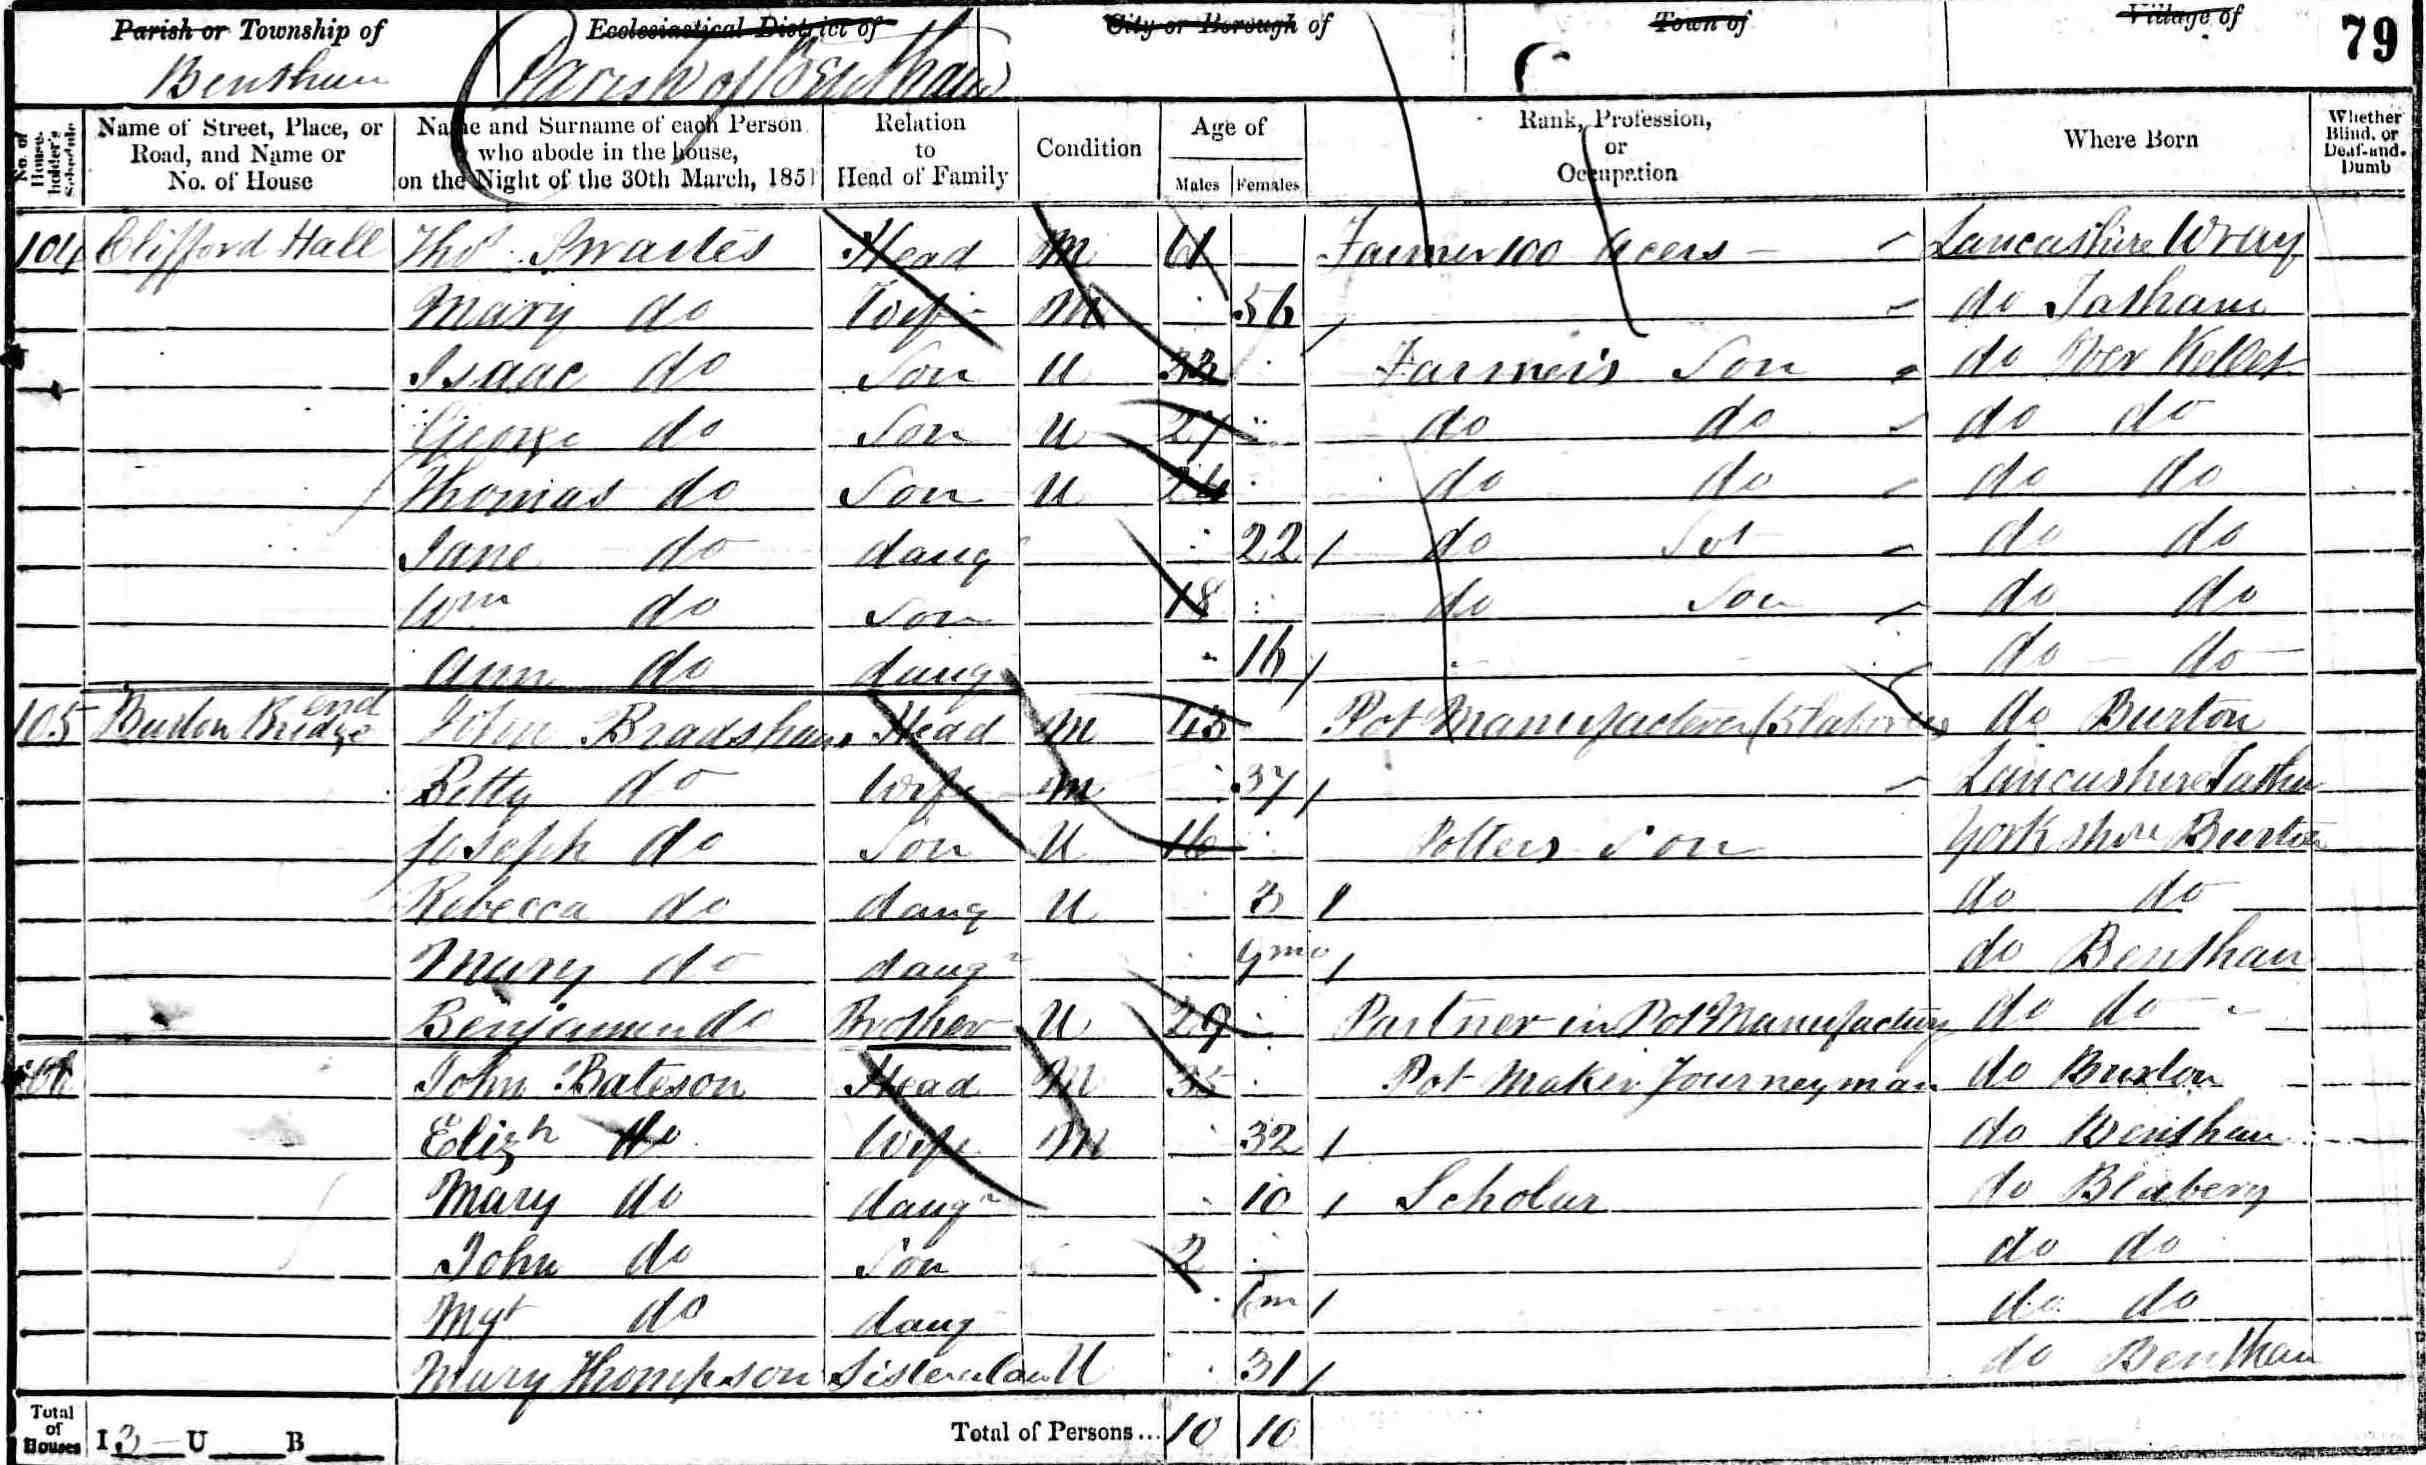 Parish or Township of Ecclesiastical District of City or Borough of Town of Village of 79
Bentham Parish of Bentham
No. of House-holder's Schedule Name of Street, Place, or Road, and Name or No. of House Name and Surname of each Person who abode in the house, on the Night of the 30th March, 1851 Relation to Head of Family Condition Age of Males Females Rank, Profession, or Occupation Where Born Whether Blind, or Deaf-and-Dumb
104 Clifford Hall Thos Swailes Head M 61 Farmer 100 Acers Lancashire Wray
Mary do Wife M 56 do Tatham
Isaac do Son U 33 Farmer's Son do Over Kellet
George do Son U 27 do do do do
Thomas do Son U 24 do do do do
Jane do daug 22 do do do
Wm do Son 18 do Son do do
Ann do daug 16 do do
105 Burton Bridge end John Bradshaw Head M 43 Pot Manufacterer (5 laborers do Burton
Betty do Wife M 37 Lancashire Tatham
Joseph do Son U 16 Potters Son Yorkshire Burton
Rebecca do daug U 3 do do
Mary do daugr 9mo do Bentham
Benjamin do Brother U 29 Partner in Pot Manufactury do do
106 John Bateson Head M 35 Pot Maker Journeyman do Burton
Elizh do Wife M 32 do Bentham
Mary do daugr 10 Scholar do Blabery
John do Son 2 do do
Mgt do daug 6m do do
Mary Thompson Sisterinlaw U 31 do Bentham
Total of Houses I 3 U B Total of Persons... 10 10